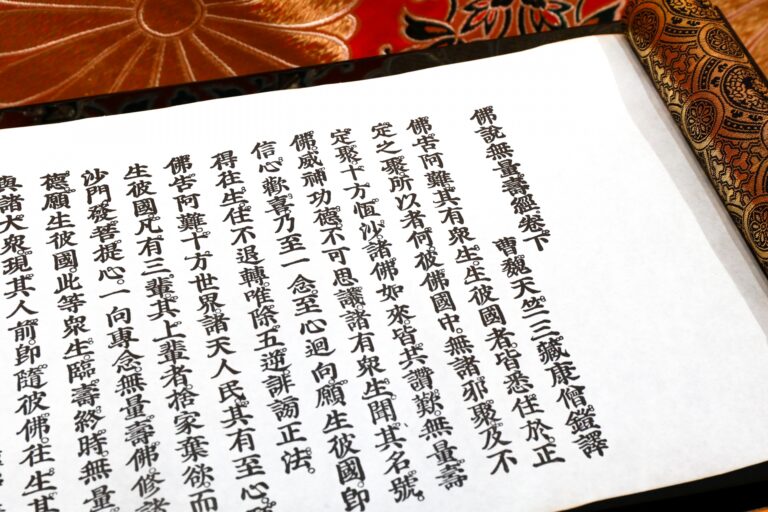 佛說無量壽經卷下　曹魏天竺三藏康僧鎧譯
佛告阿難其有衆生生彼國者皆悉住於正
定之聚所以者何彼佛國中無諸邪聚及不
定聚十方恒沙諸佛如來皆共讚歎無量壽
佛威神功德不可思議諸有衆生聞其名號
信心歡喜乃至一念至心迴向願生彼國卽
得往生住不退轉唯除五逆誹謗正法
佛告阿難十方世界諸天人民其有至心
生彼國凡有三輩其上輩者捨家棄欲而
沙門發菩提心一向專念無量壽佛修諸
德願生彼國此等衆生臨壽終時無量
與諸大衆現其人前卽隨彼佛往生其